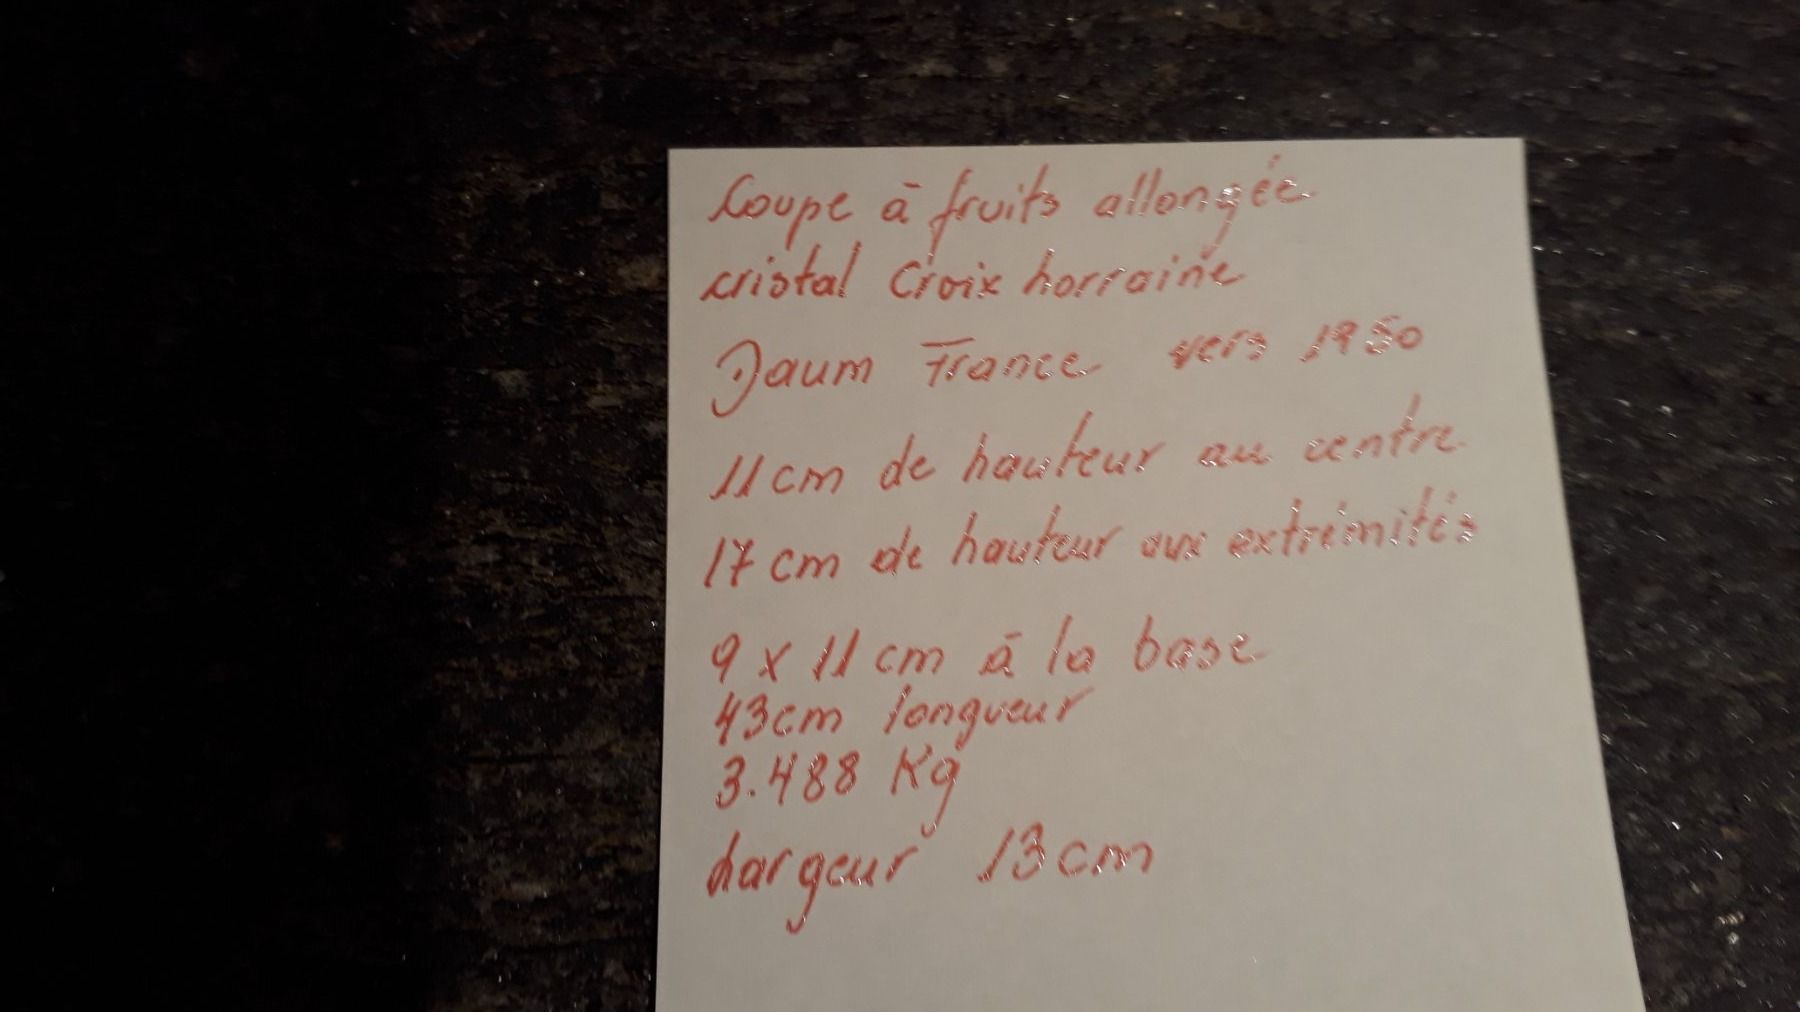 Coupe à fruits allongée
cristal Croix Lorraine
Daum France vers 1950
11 cm de hauteur au centre
17 cm de hauteur aux extrémités
9 x 11 cm à la base
43 cm longueur
3.488 Kg
Largeur 13 cm